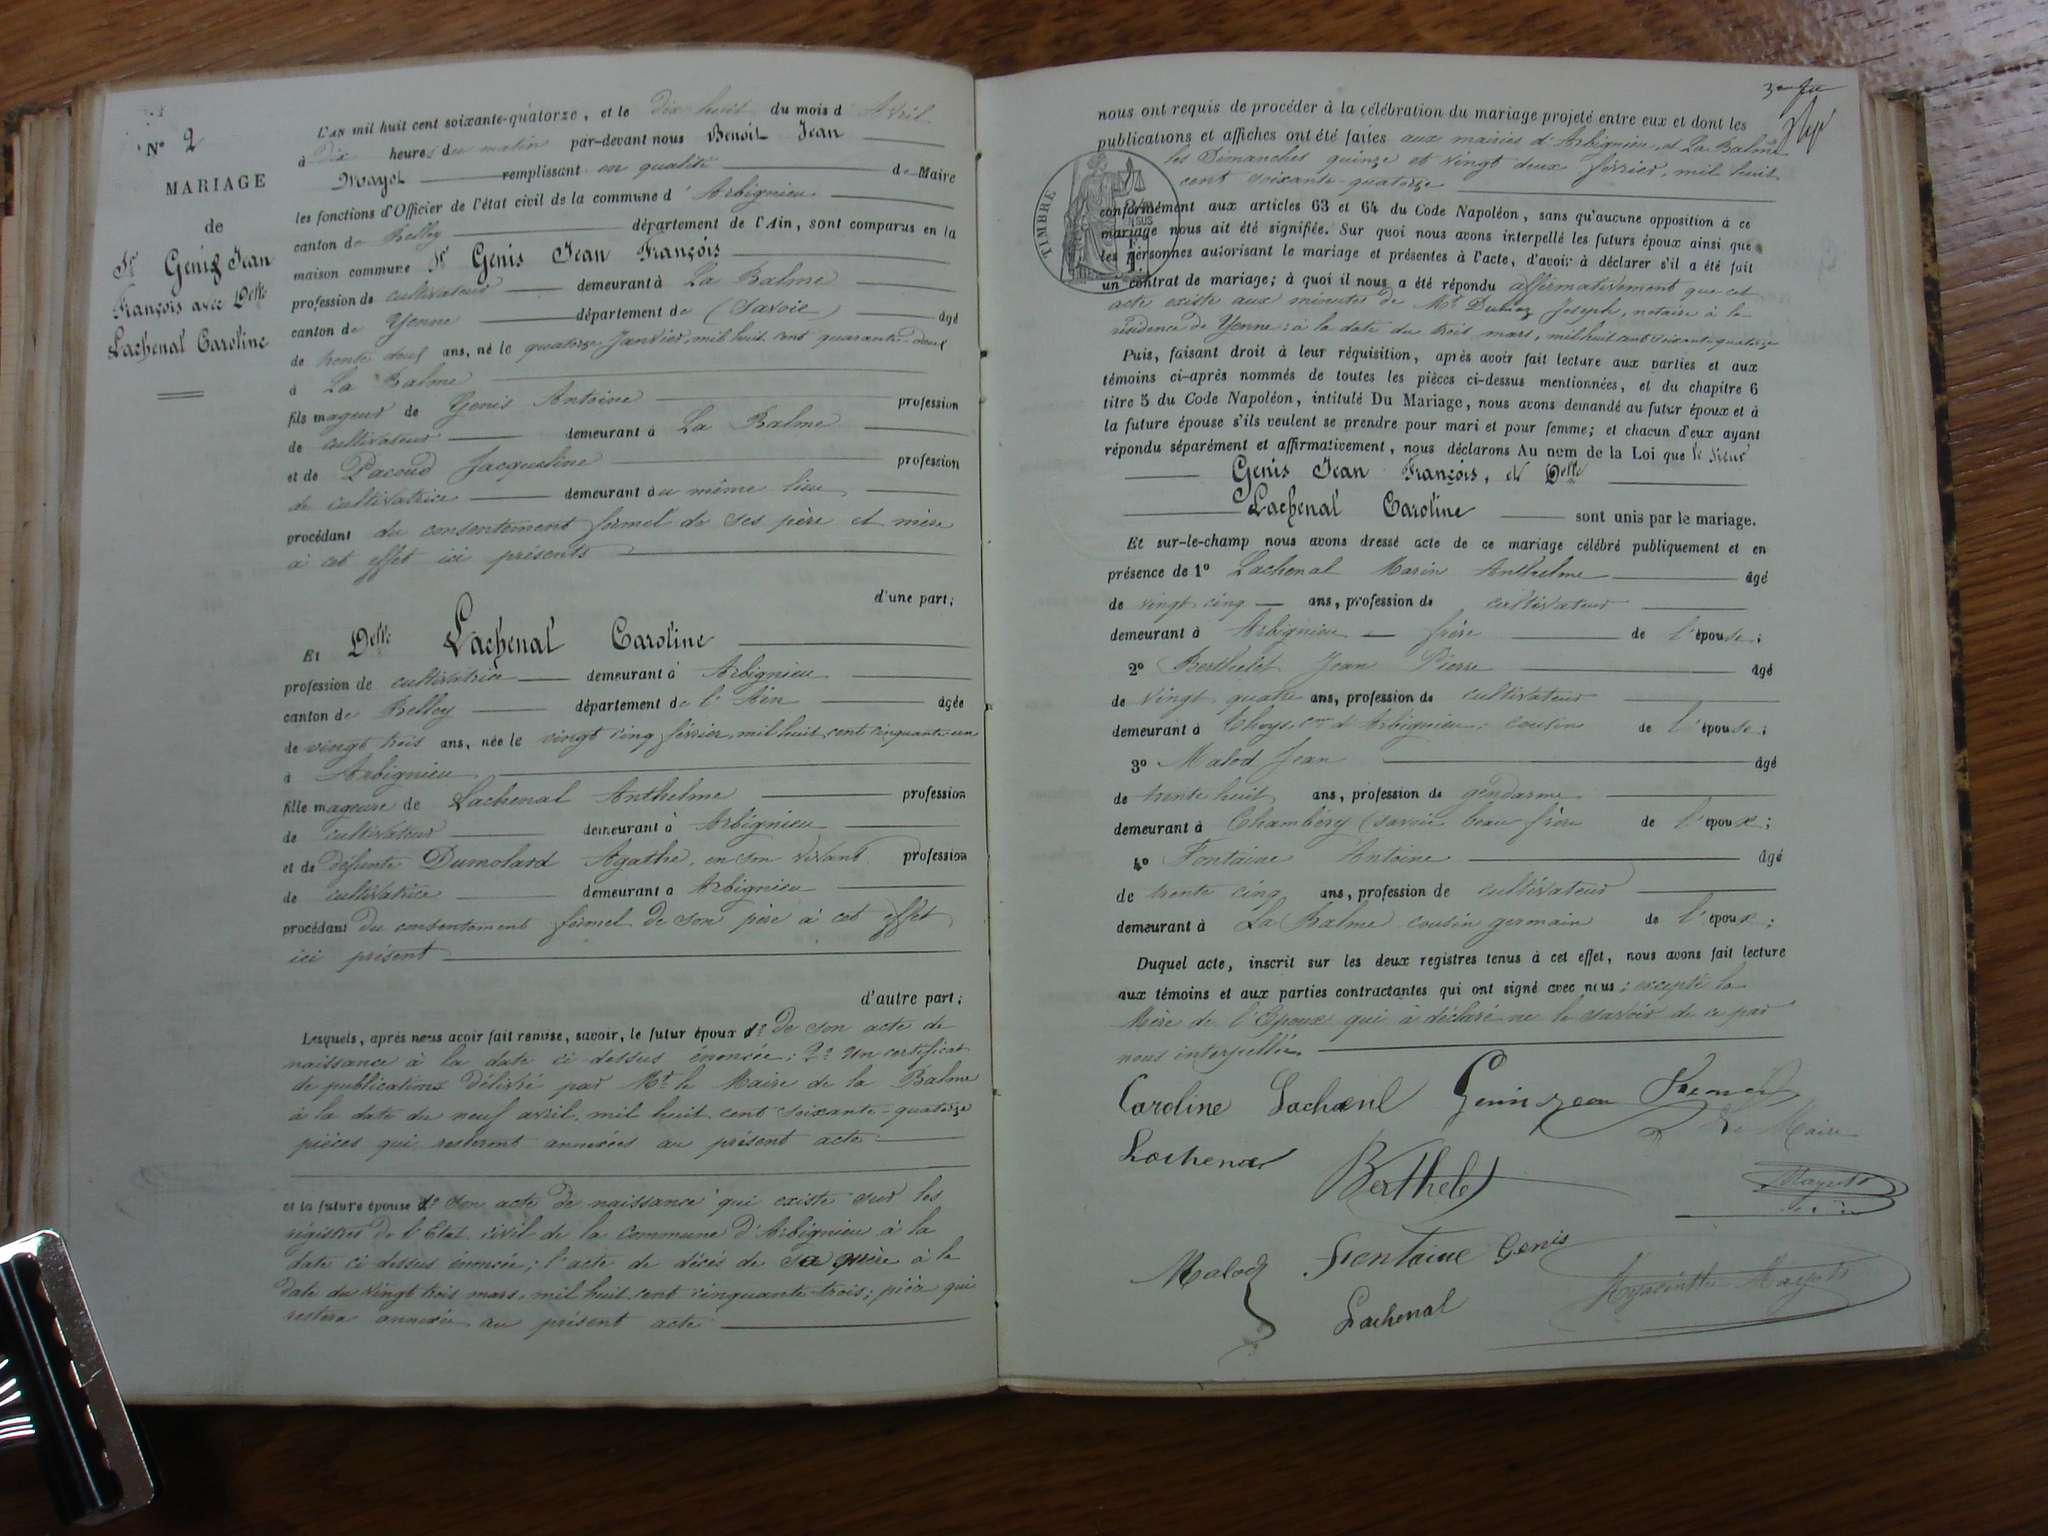 N° 2
MARIAGE
de
Sr Genis Jean
François avec Delle
Lachenal Caroline
L'an mil huit cent soixante-quatorze, et le dix huit du mois d'Avril
à Dix heures du matin par-devant nous Benoit Jean
Mayet remplissant en qualité de Maire
les fonctions d'Officier de l'état civil de la commune d'Arbignieu
canton de Belley département de l'Ain, sont comparus en la
maison commune Sr Genis Jean François
profession de cultivateur demeurant à La Balme
canton de Yenne département de (Savoie) âgé
de trente deux ans, né le quatorze Janvier, mil huit cent quarante-deux
à La Balme
fils mageur de Genis Antoine profession
de cultivateur demeurant à La Balme
et de Pacoud Jacqueline profession
de cultivatrice demeurant au même lieu
procédant du consentement formel de ses père et mère
à cet effet ici présents
d'une part;
Et Delle Lachenal Caroline
profession de cultivatrice demeurant à Arbignieu
canton de Belley département de l'Ain âgée
de vingt trois ans, née le vingt cinq février, mil huit cent cinquante-un
à Arbignieu
fille mageure de Lachenal Anthelme profession
de cultivateur demeurant à Arbignieu
et de défunte Dumolard Agathe, en son vivant profession
de cultivatrice demeurant à Arbignieu
procédant du consentement formel de son père à cet effet
ici présent
d'autre part;
Lesquels, après nous avoir fait remise, savoir, le futur époux 1° De son acte de
naissance à la date ci dessus énoncée; 2° Un certificat
de publications délivré par Mr le Maire de la Balme
à la date du neuf avril, mil huit cent soixante-quatorze
pièces qui resteront annexées au présent acte
et la future épouse 1° Son acte de naissance qui existe sur les
régistres de l'Etat civil de la commune d'Arbignieu à la
date ci dessus énoncée; l'acte de décès de sa mère à la
date du vingt trois mars, mil huit cent cinquante-trois; pièce qui
restera annexée au présent acte
nous ont requis de procéder à la célébration du mariage projeté entre eux et dont les
publications et affiches ont été faites aux mairies d'Arbignieu, et La Balme
les Dimanches quinze et vingt deux février, mil huit
cent soixante-quatorze
TIMBRE
conformément aux articles 63 et 64 du Code Napoléon, sans qu'aucune opposition à ce
mariage nous ait été signifiée. Sur quoi nous avons interpellé les futurs époux ainsi que
les personnes autorisant le mariage et présentes à l'acte, d'avoir à déclarer s'il a été fait
un contrat de mariage; à quoi il nous a été répondu affirmativement que cet
acte existe aux minutes de Mr Joseph, notaire à la
résidence de Yenne; à la date du trois mars, mil huit cent soixante-quatorze
Puis, faisant droit à leur réquisition, après avoir fait lecture aux parties et aux
témoins ci-après nommés de toutes les pièces ci-dessus mentionnées, et du chapitre 6
titre 5 du Code Napoléon, intitulé Du Mariage, nous avons demandé au futur époux et à
la future épouse s'ils veulent se prendre pour mari et pour femme; et chacun d'eux ayant
répondu séparément et affirmativement, nous déclarons Au nom de la Loi que le sieur
Genis Jean François, et Delle
Lachenal Caroline sont unis par le mariage.
Et sur-le-champ nous avons dressé acte de ce mariage célébré publiquement et en
présence de 1° Lachenal Marin Anthelme âgé
de vingt cinq ans, profession de cultivateur
demeurant à Arbignieu frère de l'épouse;
2° Berthelet Jean Pierre âgé
de vingt quatre ans, profession de cultivateur
demeurant à Thoys, cne d'Arbignieu; cousin de l'épouse;
3° Malod Jean âgé
de trente huit ans, profession de gendarme
demeurant à Chambéry (Savoie beau frère de l'époux;
4° Fontaine Antoine âgé
de trente cinq ans, profession de cultivateur
demeurant à La Balme cousin germain de l'époux;
Duquel acte, inscrit sur les deux registres tenus à cet effet, nous avons fait lecture
aux témoins et aux parties contractantes qui ont signé avec nous; excepté la
Mère de l'Epoux qui a déclaré ne le savoir de ce par
nous interpellée.
Caroline Lachenal Genis Jean
Le Maire
Lachenal Berthelet Mayet
Malod Fontaine Genis
Lachenal Hyacinthe Mayet